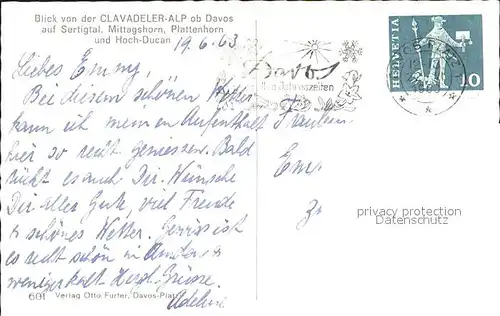 Blick von der CLAVADELER-ALP ob Davos
auf Sertigtal, Mittagshorn, Plattenhorn
und Hoch-Ducan
19.6.63
Liebes Emmy,
Bei diesem schönen Wetter
kann ich meinen Aufenthalt
hier so recht geniessen. Bald
es auch Dir. Wünsche
Dir alles Gute, viel Freude
& schönes Wetter. Gewiss ist
es recht schön in &
weniger kalt. Herzl. Grüsse.
Adeline
601 Verlag Otto Furter, Davos-Platz
Davos
Jahreszeiten
HELVETIA
10
Fräulein
Em
privacy protection
Datenschutz